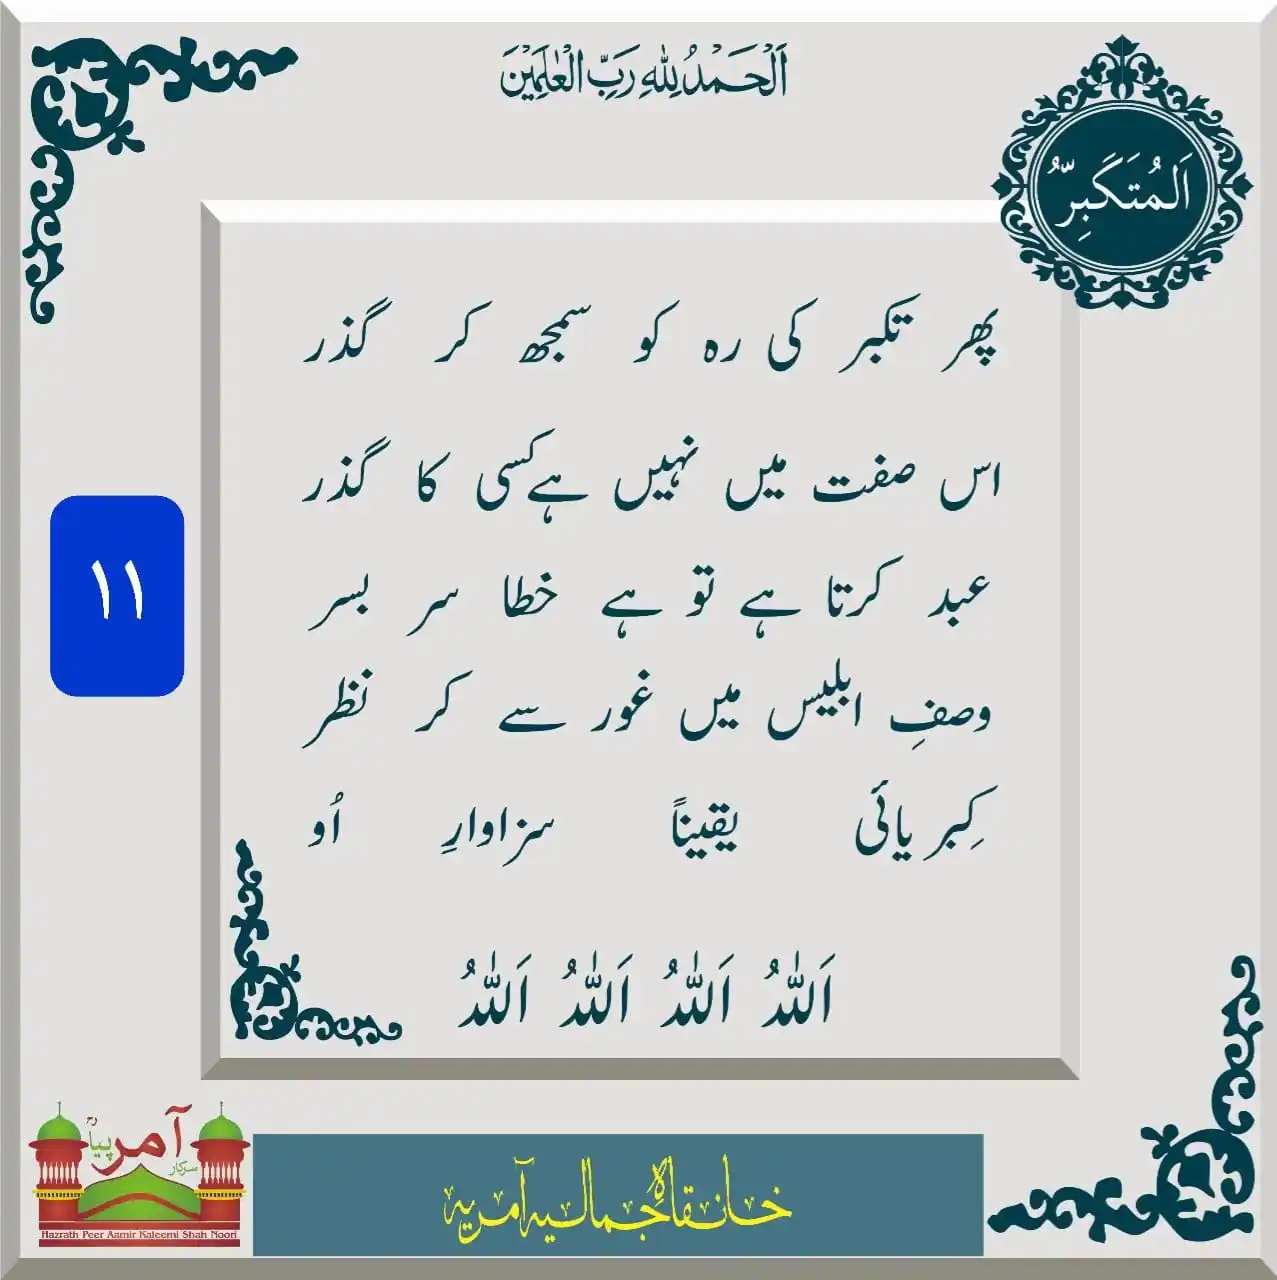 اَلْحَمْدُ لِلّٰهِ رَبِّ الْعٰلَمِيْنَ
اَلْمُتَكَبِّرُ
پھر تکبر کی رہ کو سمجھ کر گذر
اس صفت میں نہیں ہے کسی کا گذر
عبد کرتا ہے تو ہے خطا سر بسر
وصفِ ابلیس میں غور سے کر نظر
کِبریائی یقیناً سزاوارِ اُو
اَللّٰہُ اَللّٰہُ اَللّٰہُ اَللّٰہُ
١١
سرکار آمر پیا
Hazrath Peer Aamir Kaleemi Shah Noori
خانقاہ جمالیہ آمریہ